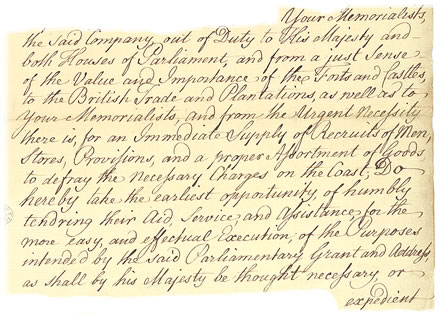 Your Memorialists,
the Said Company, out of Duty to His Majesty and
both Houses of Parliament, and from a just Sense
of the Value and Importance of the Forts and Castles,
to the British Trade and Plantations, as well as to
Your Memorialists, and from the Urgent Necessity
there is, for an Immediate Supply of Recruits of Men,
Stores, Provisions, and a proper Assortment of Goods
to defray the Necessary Charges on the Coast; Do
hereby take the earliest opportunity, of humbly
tendring their Aid, Service, and Assistance for the
more easy, and effectual Execution, of the Purposes
intended by the said Parliamentary Grant and Address,
as shall by his Majesty be thought necessary, or
expedient